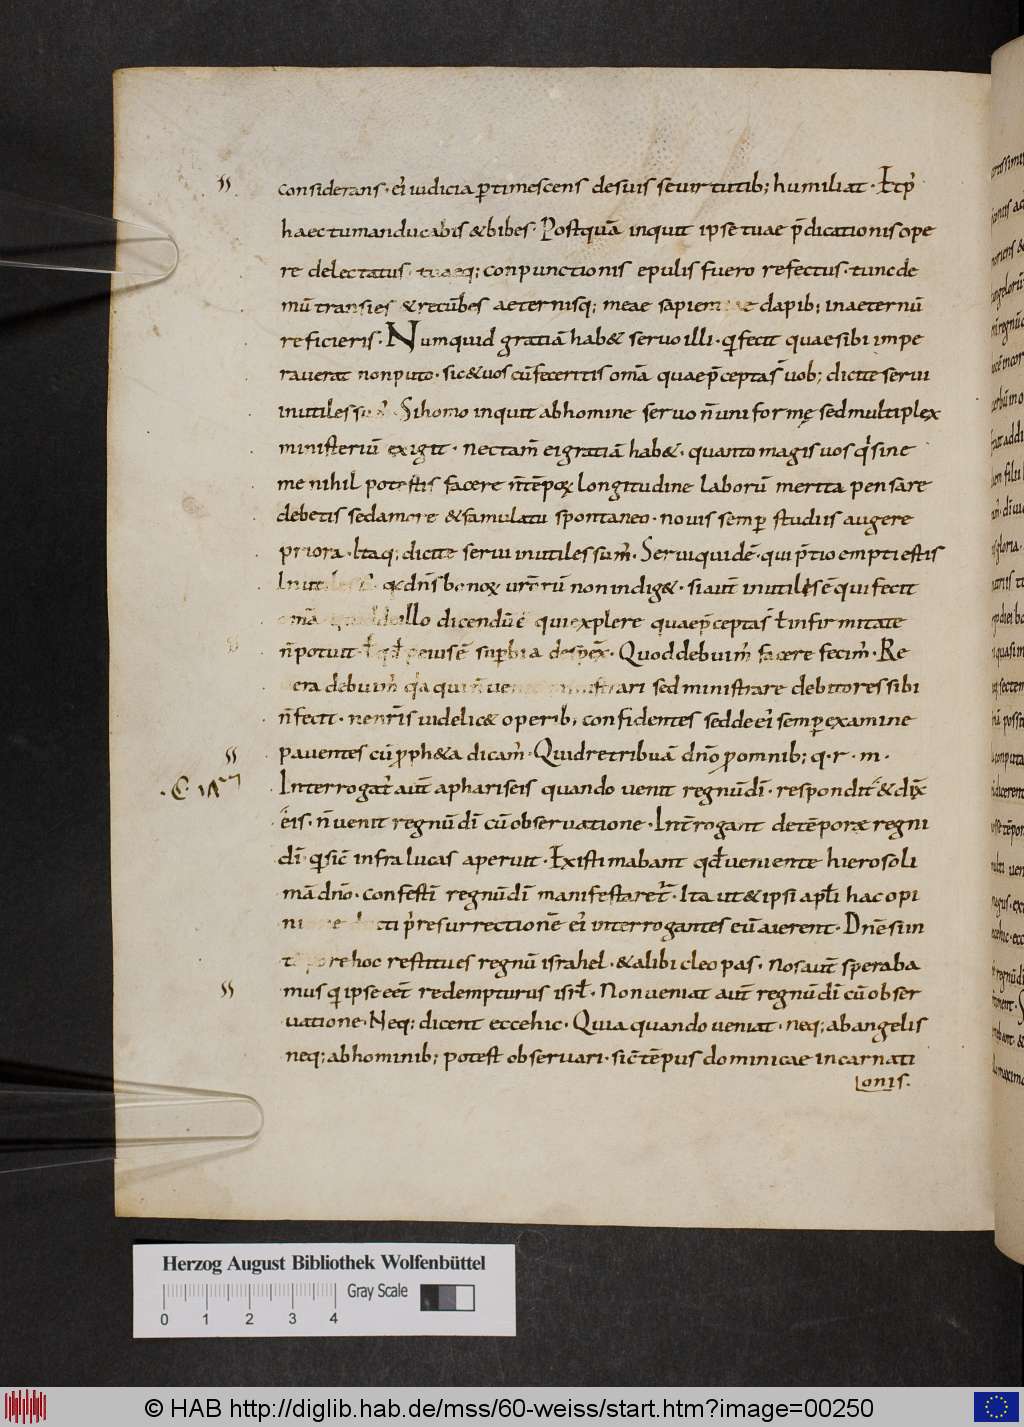 considerans · eı᾽ iudicia ꝑtimescens desuis seuirtutib; humiliat · Et p᷒
haec tu manducabis & bibes · Postquā inquit ipse tuae p̄dicationis ope
re delectatus tuaeq; conpunctionis epulis fuero refectus · tunc de
mū transies & recūbes aeternisq; meae sapientiae dapib; in aeternū
reficieris · Numquid gratiā hab& seruo illi · qı fecit quae sibi impe
rauerat non puto · sic & uos cū feceritis om̄a quae p̄cepta s̄ uob; dicite serui
inutiles sum᷒ · Si homo inquit ab homine seruo n̄ uni formę sed multiplex
ministeriū exigit · nec tam̄ ei gratiā hab& · quanto magis uos qı sine
me nihil potestis facere n̄ tēpoꝝ longitudine laborū merita pensare
debetis sed amore & famulatu spontaneo · nouis semꝑ studiis augere
priora · Itaq; dicite serui inutiles sum᷒ · Serui quidē · qui p̄tio empti estis
Inutiles dn̄s bonoꝝ ur̄erū non indig& · si aut̄ inutilis ē qui fecit
om̄a illo dicendū ē qui explere quae p̄cepta s̄ ł infirmitate
n̄ potuit · ł qđ peius ē suꝑbia despex̄ · Quod debuim᷒ facere fecim᷒ · Re
uera debuim᷒ qı̄a qui n̄ uenit ministrari sed ministrare debitores sibi
n̄ fecit · ne nr̄is uidelic& operib; confidentes sed de eı᾽ semꝑ examine
pauentes cū ꝓph&a dicam᷒ · Quid retribuā dn̄o ꝓ omnib; q · r · m ·
Interrogat᷒ aut̄ a phariseis quando uenit regnū dī · respondit & dix̄
eis · n̄ uenit regnū dī cū obseruatione · Int̄rogant de tēpore regni
dī · qı sic̄ infra lucas aperuit · Existimabant qđ ueniente hierosoli
mā dn̄o · confestī regnū dī manifestaret᷒ · Ita ut & ipsi apłi hac opi
nione ducti p᷒ resurrectionē eı᾽ interrogantes eū aierent · Dn̄e si in
tēpore hoc restitues regnū israhel · & alibi cleopas · Nos aut̄ speraba
mus qı ipse eēt redempturus isrł · Non ueniat aut̄ regnū dī cū obser
uatione · Neq; dicent ecce hic · Quia quando ueniat · neq; ab angelis
neq; ab hominib; potest obseruari · sic̄ tēpus dominicae incarnati
onis ·
Herzog August Bibliothek Wolfenbüttel
Gray Scale
0 1 2 3 4
© HAB http://diglib.hab.de/mss/60-weiss/start.htm?image=00250